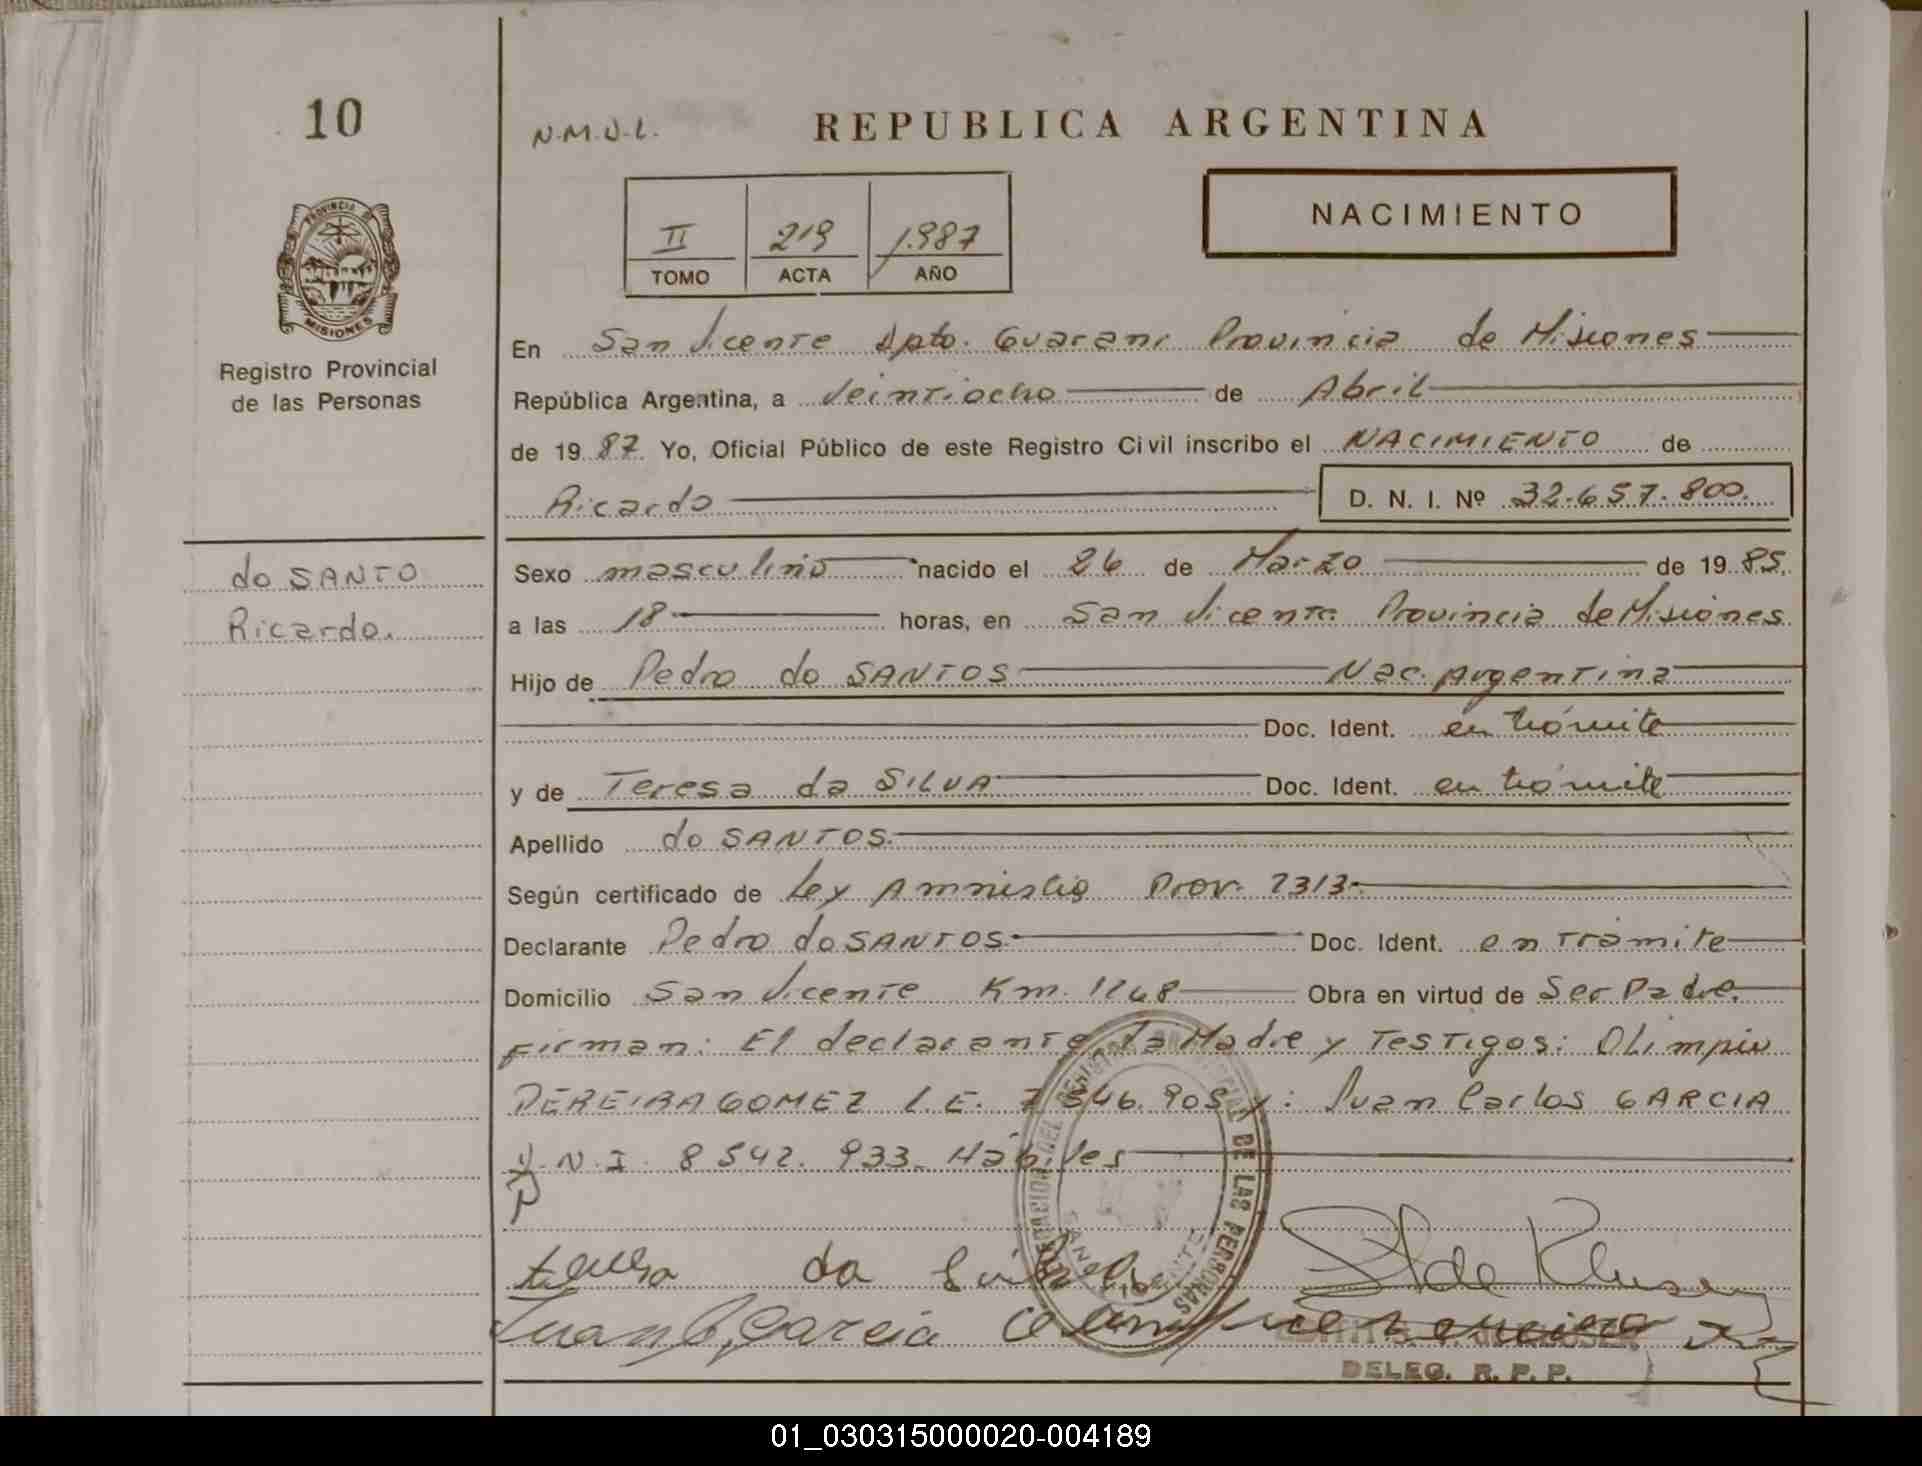 10
N.M.J.L.
REPUBLICA ARGENTINA
NACIMIENTO
II 219 1.987
TOMO ACTA AÑO
PROVINCIA DE
MISIONES
Registro Provincial
de las Personas
En San Vicente Dpto. Guarani Provincia de Misiones
República Argentina, a Veintiocho de Abril
de 19 87 Yo, Oficial Público de este Registro Civil inscribo el NACIMIENTO de
Ricardo D. N. I. Nº 32.657.800.
do SANTO
Ricardo.
Sexo masculino nacido el 26 de Marzo de 19 85.
a las 18 horas, en San Vicente Provincia de Misiones
Hijo de Pedro do SANTOS Nac. Argentina
Doc. Ident. en trámite
y de Teresa da SILVA Doc. Ident. en trámite
Apellido do SANTOS.
Según certificado de Ley Amnistia Prov. 2313-
Declarante Pedro do SANTOS. Doc. Ident. en Tramite
Domicilio San Vicente Km. 1268 Obra en virtud de Ser Padre.
Firman: El declarante, La Madre y Testigos: OLimpio
PEREIRA GOMEZ L.E. 7.546.905 y: Juan Carlos GARCIA
D.N.I. 8 542. 933. Hábiles
da Silva
Juan C. Garcia
DELEG. R. P. P.
DE LAS PERSONAS
01_030315000020-004189